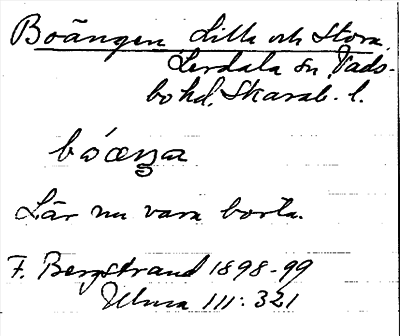 Boängen Lilla och Stora.
Lerdala sn, Vads-
bo hd, Skarab. l.
bóæŋa
Lär nu vara borta.
F. Bergstrand 1898-99
III: 321